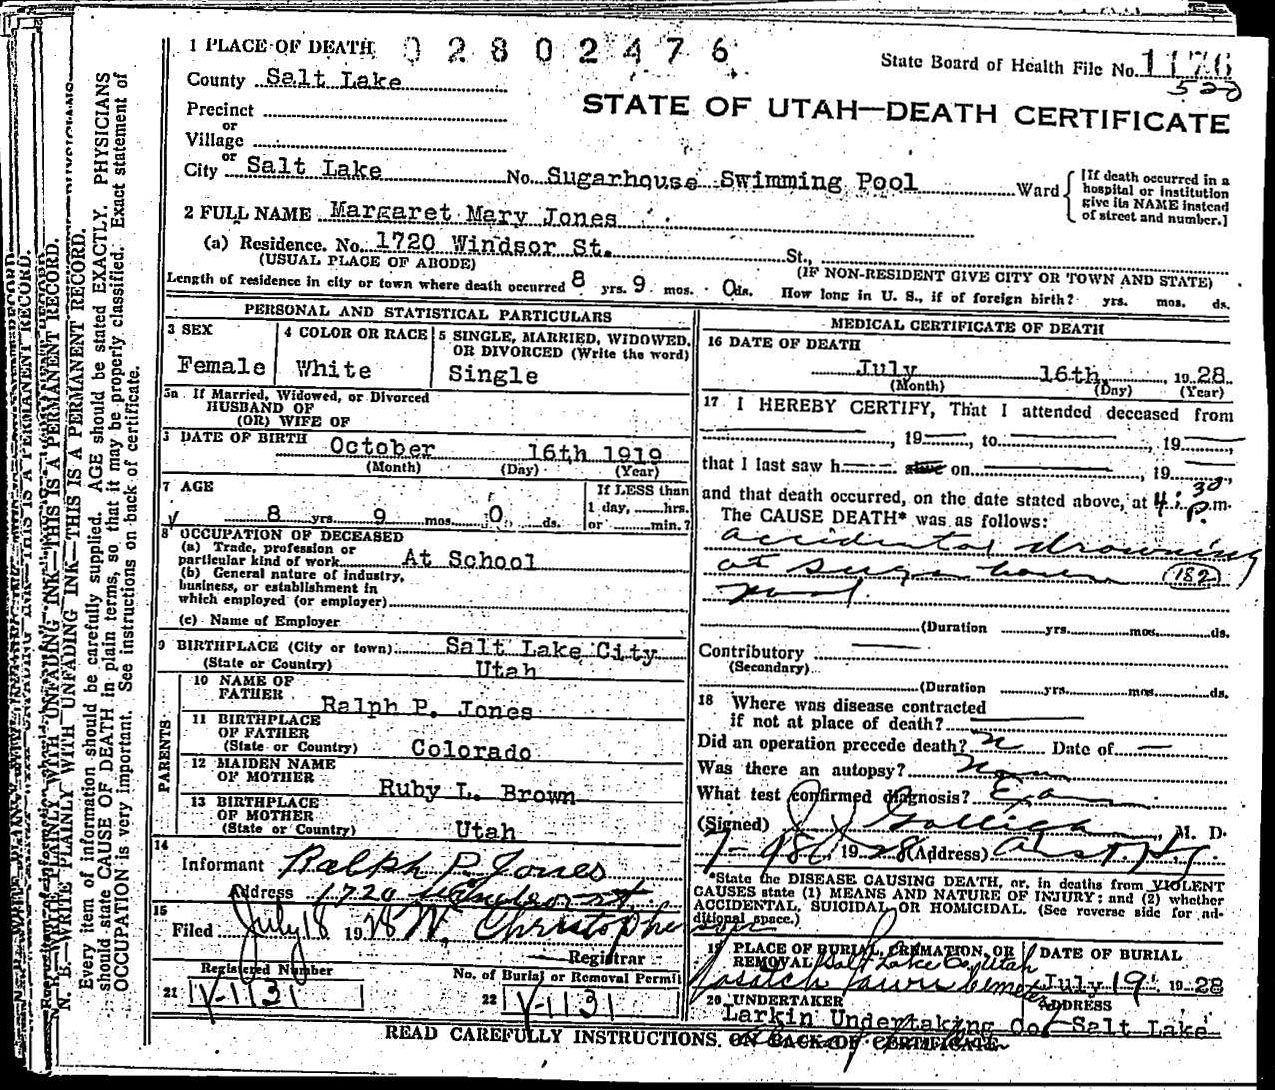 1 PLACE OF DEATH 02802476
State Board of Health File No. 1176
520
County Salt Lake
STATE OF UTAH—DEATH CERTIFICATE
Precinct
or
Village
or
City Salt Lake No. Sugarhouse Swimming Pool Ward
[If death occurred in a
hospital or institution
give its NAME instead
of street and number.]
2 FULL NAME Margaret Mary Jones
(a) Residence. No. 1720 Windsor St. St.,
(USUAL PLACE OF ABODE) (IF NON-RESIDENT GIVE CITY OR TOWN AND STATE)
Length of residence in city or town where death occurred 8 yrs. 9 mos. 0 ds. How long in U. S., if of foreign birth? yrs. mos. ds.
PERSONAL AND STATISTICAL PARTICULARS
3 SEX
Female
4 COLOR OR RACE
White
5 SINGLE, MARRIED, WIDOWED,
OR DIVORCED (Write the word)
Single
5a If Married, Widowed, or Divorced
HUSBAND OF
(OR) WIFE OF
DATE OF BIRTH October 16th 1919
(Month) (Day) (Year)
7 AGE
8 yrs. 9 mos. 0 ds.
If LESS than
1 day, hrs.
or min.?
8 OCCUPATION OF DECEASED
(a) Trade, profession or
particular kind of work At School
(b) General nature of industry,
business, or establishment in
which employed (or employer)
(c) Name of Employer
9 BIRTHPLACE (City or town) Salt Lake City
(State or Country) Utah
PARENTS
10 NAME OF
FATHER Ralph P. Jones
11 BIRTHPLACE
OF FATHER
(State or Country) Colorado
12 MAIDEN NAME
OF MOTHER Ruby L. Brown
13 BIRTHPLACE
OF MOTHER
(State or Country) Utah
14
Informant Ralph P. Jones
Address 1720 Windsor St
15
Filed July 18 1928 W. Christopherson
Registrar
Registered Number
21 V-1131
No. of Burial or Removal Permit
22 V-1131
MEDICAL CERTIFICATE OF DEATH
16 DATE OF DEATH
July 16th, 1928
(Month) (Day) (Year)
17 I HEREBY CERTIFY, That I attended deceased from
, 19 , to , 19
that I last saw h alive on , 19
and that death occurred, on the date stated above, at 4:30 p.m.
The CAUSE DEATH* was as follows:
accidental drowning
at sugar house (182)
pool
(Duration yrs. mos. ds.
Contributory
(Secondary)
(Duration yrs. mos. ds.
18 Where was disease contracted
if not at place of death?
Did an operation precede death? n Date of —
Was there an autopsy? None
What test confirmed diagnosis? Exam
(Signed) Galligan, M. D.
1928 (Address)
*State the DISEASE CAUSING DEATH, or, in deaths from VIOLENT
CAUSES state (1) MEANS AND NATURE OF INJURY: and (2) whether
ACCIDENTAL, SUICIDAL OR HOMICIDAL. (See reverse side for ad-
ditional space.)
19 PLACE OF BURIAL, CREMATION, OR
REMOVAL Salt Lake Co. Utah
Wasatch Lawn Cemetery
DATE OF BURIAL
July 19 1928
20 UNDERTAKER ADDRESS
Larkin Undertaking Co. Salt Lake
READ CAREFULLY INSTRUCTIONS ON BACK OF CERTIFICATE
N. B.—WRITE PLAINLY WITH UNFADING INK—THIS IS A PERMANENT RECORD.
Every item of information should be carefully supplied. AGE should be stated EXACTLY. PHYSICIANS
should state CAUSE OF DEATH in plain terms, so that it may be properly classified. Exact statement of
OCCUPATION is very important. See instructions on back of certificate.